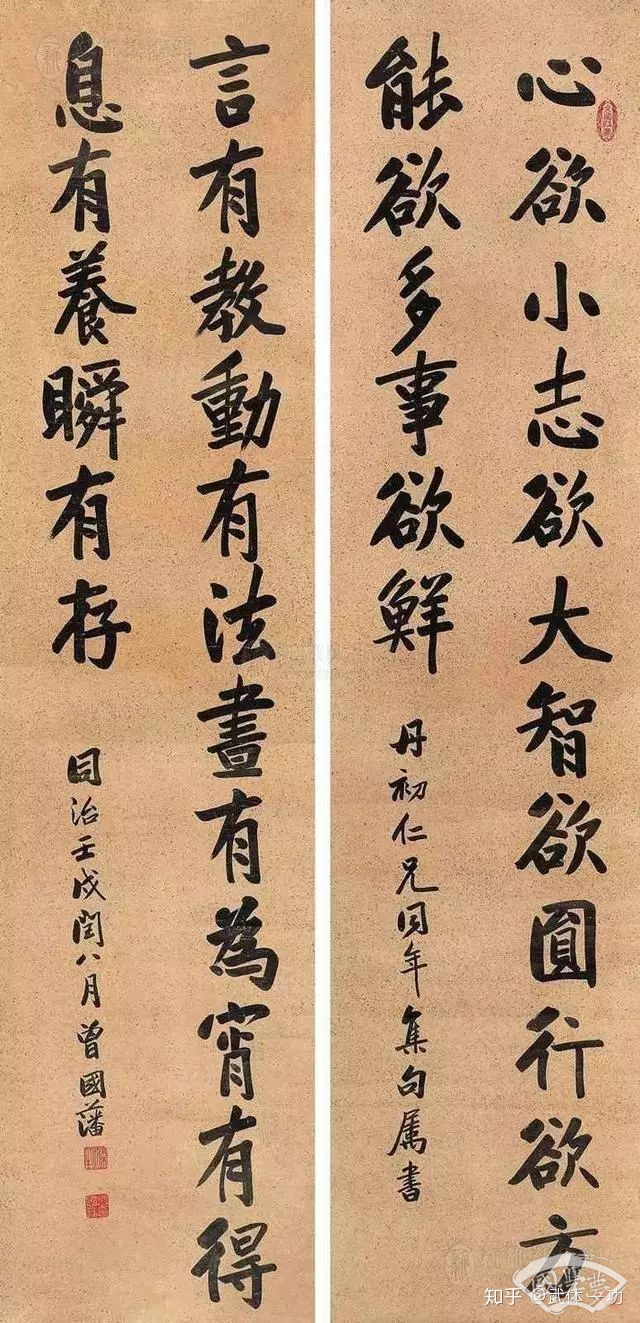 心欲小志欲大智欲圓行欲方
能欲多事欲鮮
丹初仁兄同年集句属書
言有教動有法晝有為宵有得
息有養瞬有存
同治壬戌閏八月曾國藩
知乎 @武伍一功